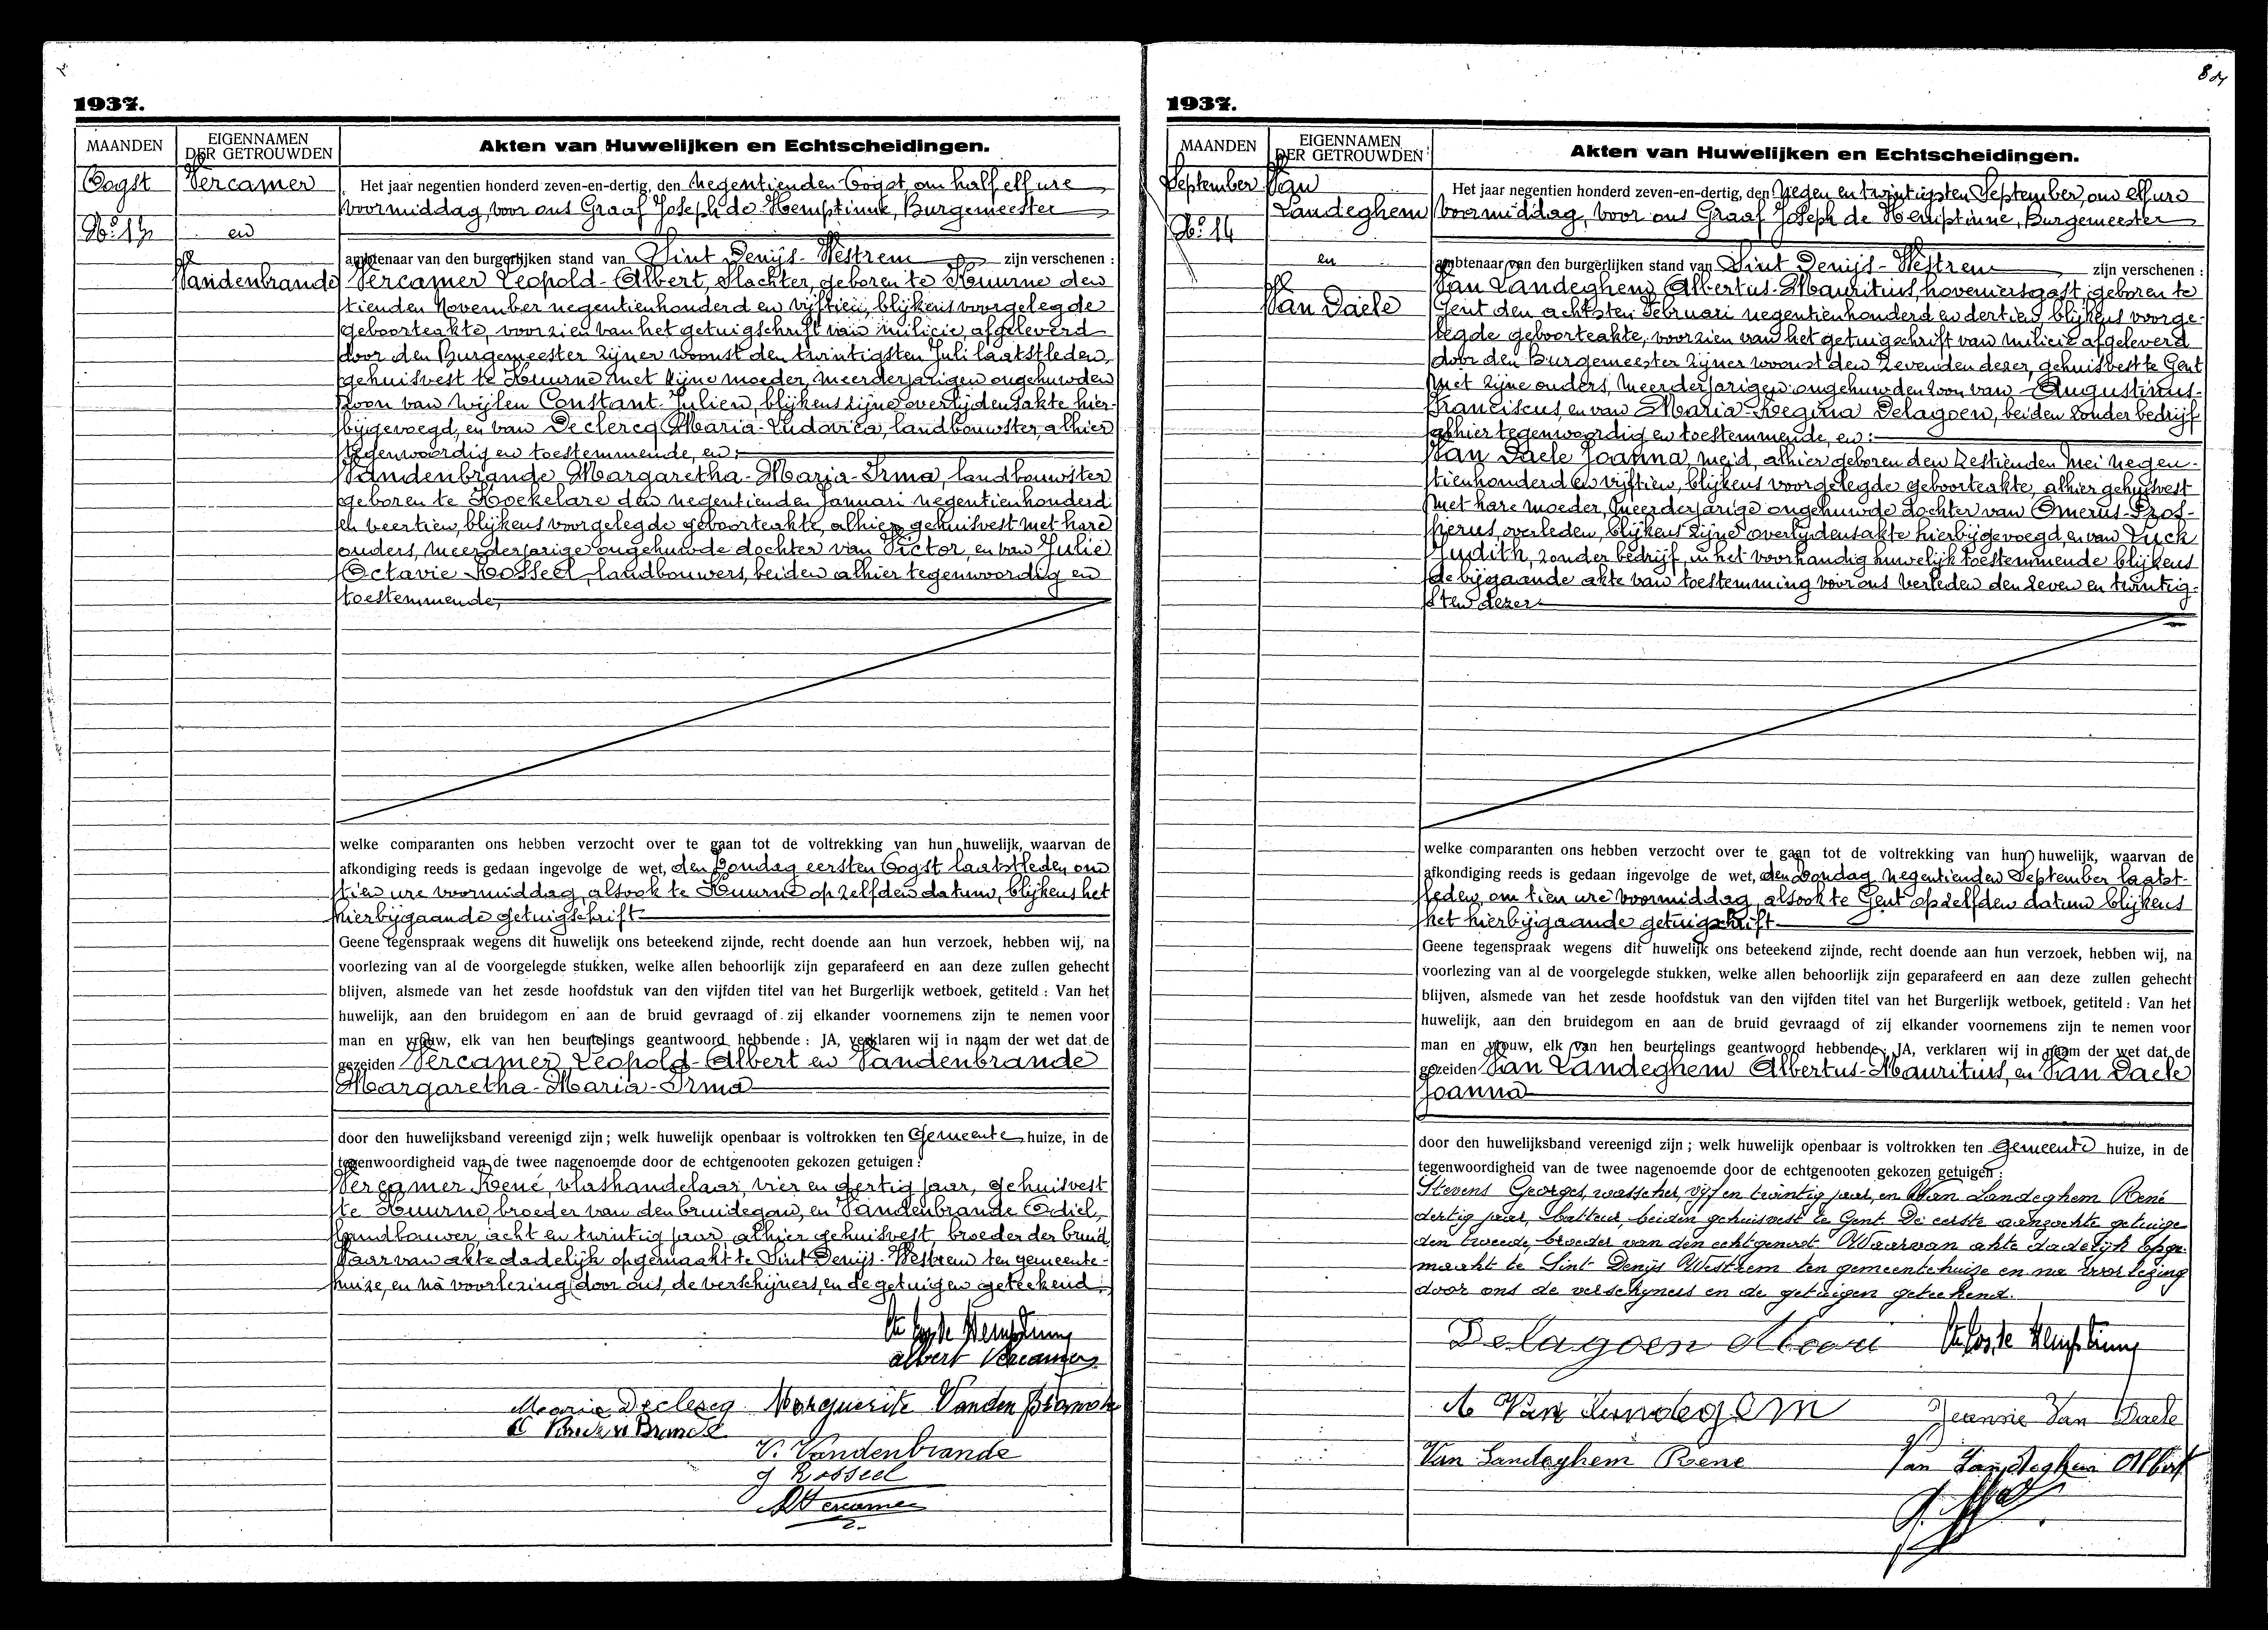 1937.
MAANDEN
EIGENNAMEN
DER GETROUWDEN
Akten van Huwelijken en Echtscheidingen.
Oogst
Vercamer
No 13
en
Vandenbrande
Het jaar negentien honderd zeven-en-dertig, den negentienden Oogst, om half elf ure
voormiddag, voor ons Graaf Joseph de Hemptinne, Burgemeester
ambtenaar van den burgerlijken stand van Sint Denijs-Westrem zijn verschenen :
Vercamer Leopold-Albert, slachter, geboren te Kuurne den
tienden November negentienhonderd en vijftien, blijkens voorgelegde
geboorteakte, voorzien van het getuigschrift van milicie afgeleverd
door den Burgemeester zijner woonst den twintigsten Juli laatstleden,
gehuisvest te Kuurne met zijne moeder, meerderjarigen ongehuwden
zoon van wijlen Constant-Julien, blijkens zijne overlijdensakte hier-
bijgevoegd, en van Declercq Maria-Ludovica, landbouwster, alhier
tegenwoordig en toestemmende, en :
Vandenbrande Margaretha-Maria-Irma, landbouwster
geboren te Koekelare den negentienden Januari negentienhonderd
en veertien, blijkens voorgelegde geboorteakte, alhier gehuisvest met hare
ouders, meerderjarige ongehuwde dochter van Victor, en van Julie
Octavie Rosseel, landbouwers, beiden alhier tegenwoordig en
toestemmende,
welke comparanten ons hebben verzocht over te gaan tot de voltrekking van hun huwelijk, waarvan de
afkondiging reeds is gedaan ingevolge de wet, den Zondag eersten Oogst laatstleden om
tien ure voormiddag, alsook te Kuurne op zelfden datum, blijkens het
hierbijgaande getuigschrift
Geene tegenspraak wegens dit huwelijk ons beteekend zijnde, recht doende aan hun verzoek, hebben wij, na
voorlezing van al de voorgelegde stukken, welke allen behoorlijk zijn geparafeerd en aan deze zullen gehecht
blijven, alsmede van het zesde hoofdstuk van den vijfden titel van het Burgerlijk wetboek, getiteld : Van het
huwelijk, aan den bruidegom en aan de bruid gevraagd of zij elkander voornemens zijn te nemen voor
man en vrouw, elk van hen beurtelings geantwoord hebbende : JA, verklaren wij in naam der wet dat de
gezeiden Vercamer Leopold-Albert en Vandenbrande
Margaretha-Maria-Irma
door den huwelijksband vereenigd zijn ; welk huwelijk openbaar is voltrokken ten Gemeente huize, in de
tegenwoordigheid van de twee nagenoemde door de echtgenooten gekozen getuigen :
Vercamer René, vlashandelaar, vier en dertig jaar, gehuisvest
te Kuurne, broeder van den bruidegom, en Vandenbrande Odiel,
landbouwer, acht en twintig jaar, alhier gehuisvest, broeder der bruid
Waarvan akte dadelijk opgemaakt te Sint Denijs-Westrem ten gemeente-
huize, en na voorlezing door ons, de verschijners, en de getuigen geteekend.
albert Vercamer
Maria Declercq Marguerite Vanden Brande
V. Vandenbrande
J Rosseel
R Vercamer
1937.
MAANDEN
EIGENNAMEN
DER GETROUWDEN
Akten van Huwelijken en Echtscheidingen.
September
Van
Landeghem
No 14
en
Van Daele
Het jaar negentien honderd zeven-en-dertig, den negen en twintigsten September, om elf ure
voormiddag, voor ons Graaf Joseph de Hemptinne, Burgemeester
ambtenaar van den burgerlijken stand van Sint Denijs-Westrem zijn verschenen :
Van Landeghem Albertus-Mauritius, hoveniersgast, geboren te
Gent den achtsten Februari negentienhonderd en dertien blijkens voorge-
legde geboorteakte, voorzien van het getuigschrift van milicie afgeleverd
door den Burgemeester zijner woonst den zevenden dezer, gehuisvest te Gent
met zijne ouders, meerderjarigen ongehuwden zoon van Augustinus-
Franciscus, en van Maria-Regina Delagoen, beiden zonder bedrijf
alhier tegenwoordig en toestemmende, en :
Van Daele Joanna, meid, alhier geboren den zestienden Mei negen-
tienhonderd en vijftien, blijkens voorgelegde geboorteakte, alhier gehuisvest
met hare moeder, meerderjarige ongehuwde dochter van Omerus-Pros-
perus, overleden, blijkens zijne overlijdensakte hierbijgevoegd, en van Luck
Judith, zonder bedrijf, in het voorhandig huwelijk toestemmende blijkens
de bijgaande akte van toestemming voor ons verleden den zeven en twintig-
sten dezer.
welke comparanten ons hebben verzocht over te gaan tot de voltrekking van hun huwelijk, waarvan de
afkondiging reeds is gedaan ingevolge de wet, den Zondag negentienden September laatst-
leden, om tien ure voormiddag, alsook te Gent op zelfden datum blijkens
het hierbijgaande getuigschrift
Geene tegenspraak wegens dit huwelijk ons beteekend zijnde, recht doende aan hun verzoek, hebben wij, na
voorlezing van al de voorgelegde stukken, welke allen behoorlijk zijn geparafeerd en aan deze zullen gehecht
blijven, alsmede van het zesde hoofdstuk van den vijfden titel van het Burgerlijk wetboek, getiteld : Van het
huwelijk, aan den bruidegom en aan de bruid gevraagd of zij elkander voornemens zijn te nemen voor
man en vrouw, elk van hen beurtelings geantwoord hebbende : JA, verklaren wij in naam der wet dat de
gezeiden Van Landeghem Albertus-Mauritius, en Van Daele
Joanna
door den huwelijksband vereenigd zijn ; welk huwelijk openbaar is voltrokken ten Gemeente huize, in de
tegenwoordigheid van de twee nagenoemde door de echtgenooten gekozen getuigen :
Stevens Georges, wasscher, vijf en twintig jaar, en Van Landeghem René
dertig jaar, batteur, beiden gehuisvest te Gent. De eerste aanzochte getuige
den tweede, broeder van den echtgenoot. Waarvan akte dadelijk opge-
maakt te Sint-Denijs Westrem ten gemeentehuize en na voorlezing
door ons de verschyners en de getuigen geteekend.
Delagoen
A Van Landegem Jeanne Van Daele
Van Landeghem Rene Van Landeghem Albert